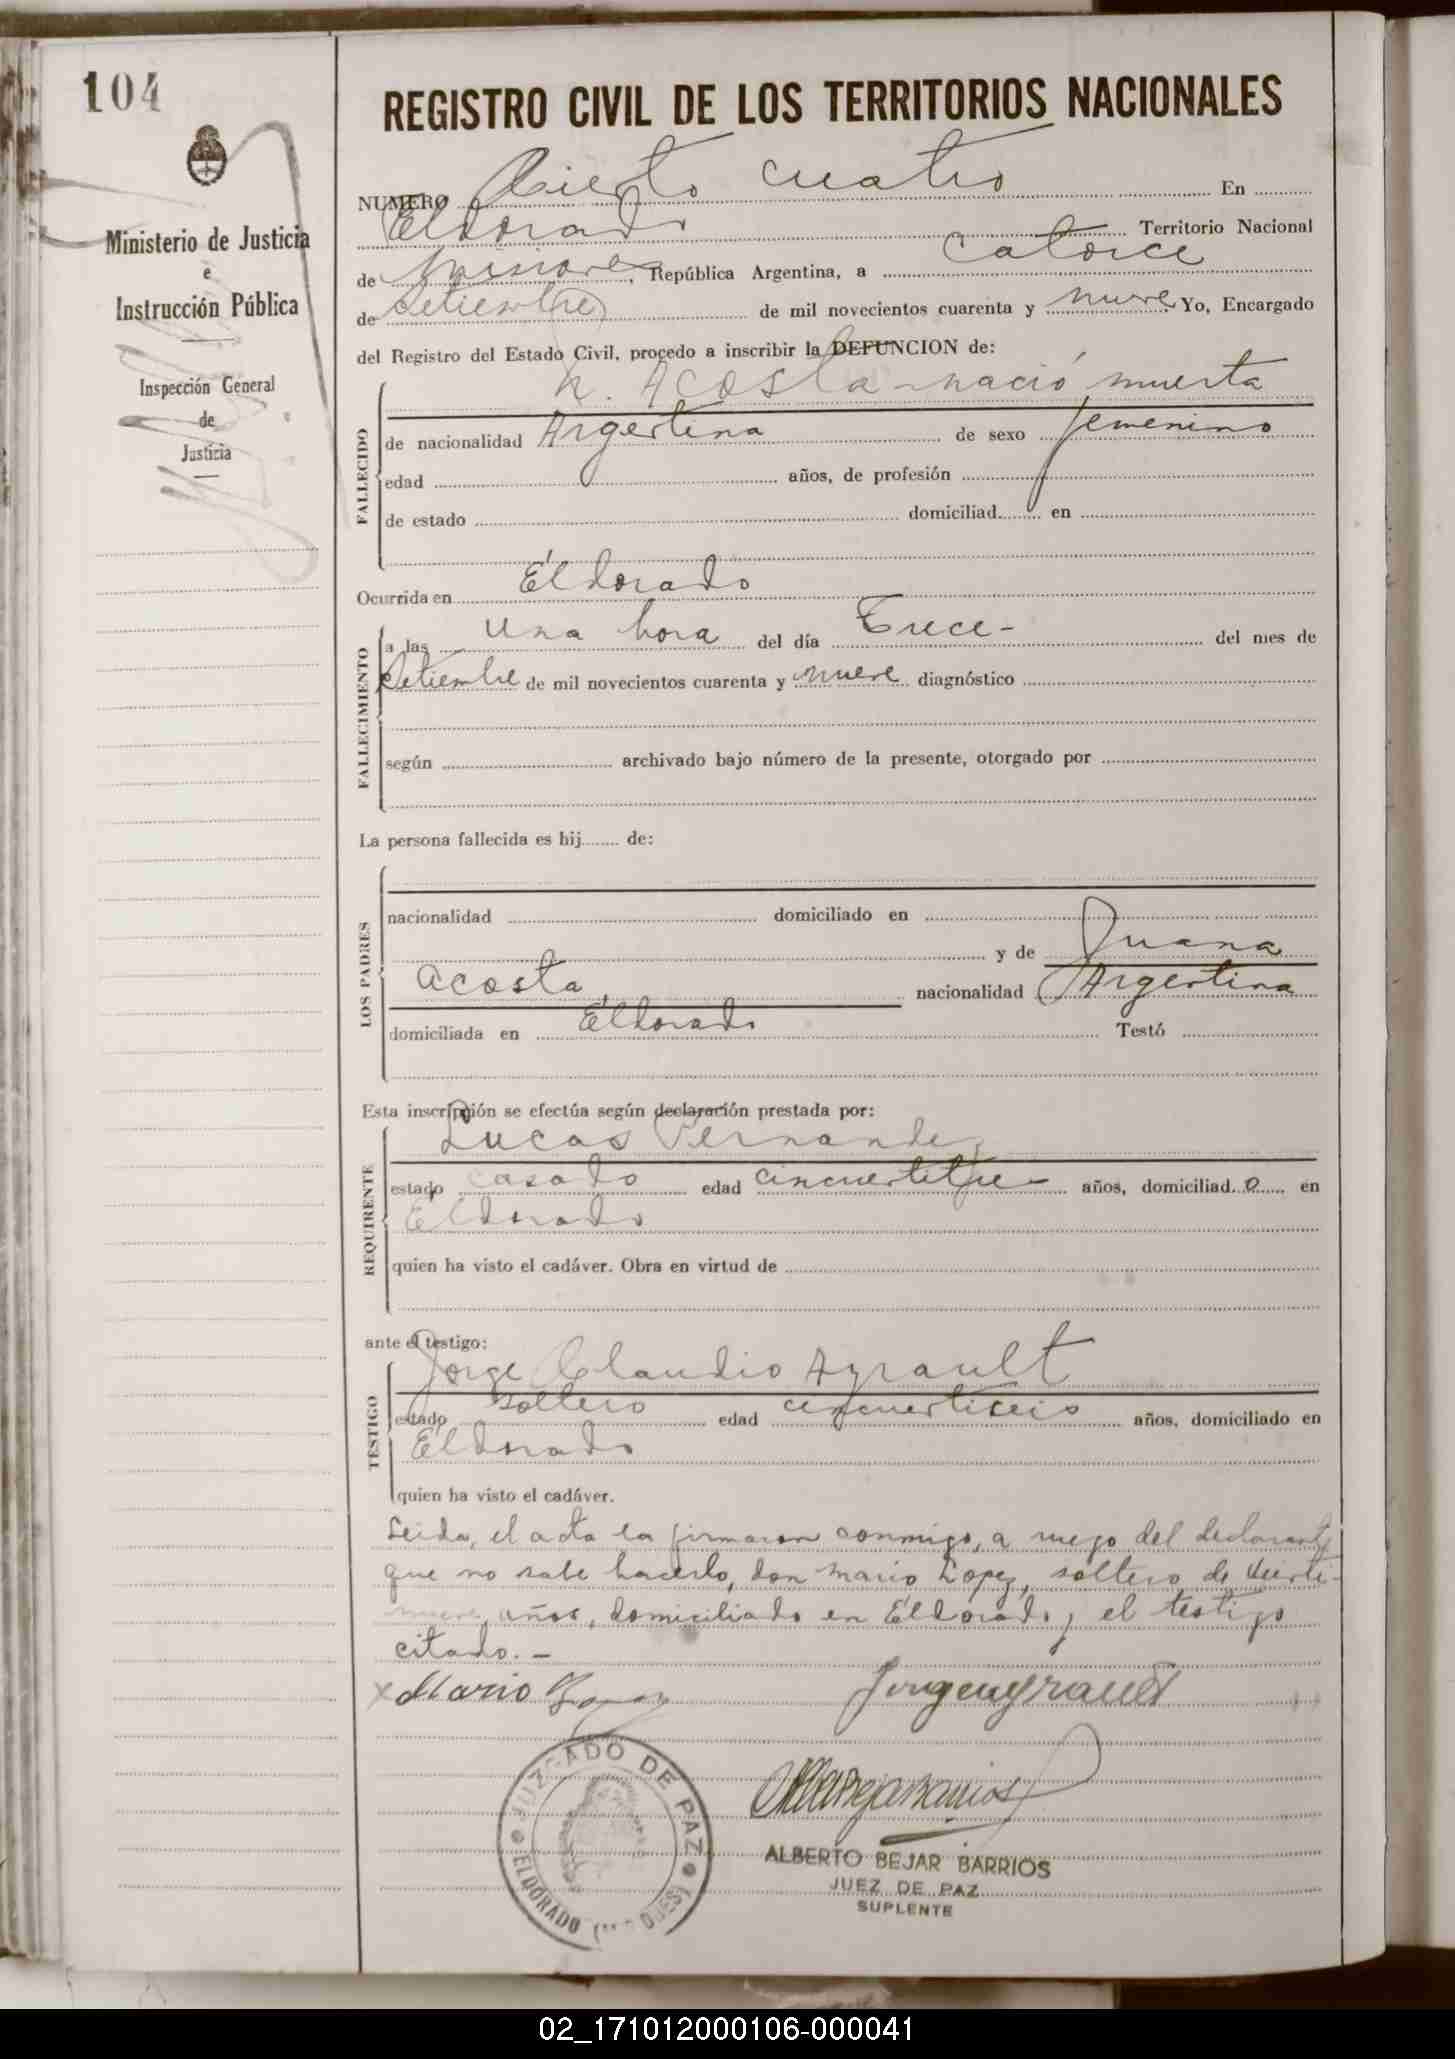 104
REGISTRO CIVIL DE LOS TERRITORIOS NACIONALES
Ministerio de Justicia
e
Instrucción Pública
Inspección General
de
Justicia
NUMERO Ciento cuatro En
Eldorado Territorio Nacional
de Misiones, República Argentina, a catorce
de Setiembre de mil novecientos cuarenta y nueve Yo, Encargado
del Registro del Estado Civil, procedo a inscribir la DEFUNCION de:
N. Acosta - nació muerta
FALLECIDO
de nacionalidad Argentina de sexo femenino
edad años, de profesión
de estado domiciliad en
Ocurrida en Eldorado
FALLECIMIENTO
a las una hora del día Trece - del mes de
Setiembre de mil novecientos cuarenta y nueve diagnóstico
según archivado bajo número de la presente, otorgado por
La persona fallecida es hij de:
LOS PADRES
nacionalidad domiciliado en
y de Juana
Acosta nacionalidad Argentina
domiciliada en Eldorado Testó
Esta inscripción se efectúa según declaración prestada por:
REQUIRENTE
Lucas Fernandez
estado casado edad cincuentitre - años, domiciliad o en
Eldorado
quien ha visto el cadáver. Obra en virtud de
ante el testigo:
TESTIGO
Jorge Claudio Ayrault
estado soltero edad cincuentiseis años, domiciliado en
Eldorado
quien ha visto el cadáver.
Leida, el acta la firmaron conmigo, a ruego del declarante
que no sabe hacerlo, don Mario Lopez, soltero de veinti-
nueve años, domiciliado en Eldorado, el testigo
citado. -
x Mario Lopez
JUZGADO DE PAZ
ELDORADO
ALBERTO BEJAR BARRIOS
JUEZ DE PAZ
SUPLENTE
02_171012000106-000041